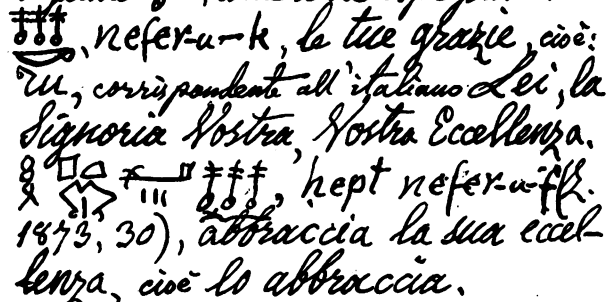 , nefer-u-k, le tue grazie, cioè:
Tu, corrispondente all'italiano Lei, la
Signoria Vostra, Vostra Eccellenza.
, hept nefer-u-f (Z.
1873, 30), abbraccia la sua eccel-
lenza, cioè lo abbraccia.